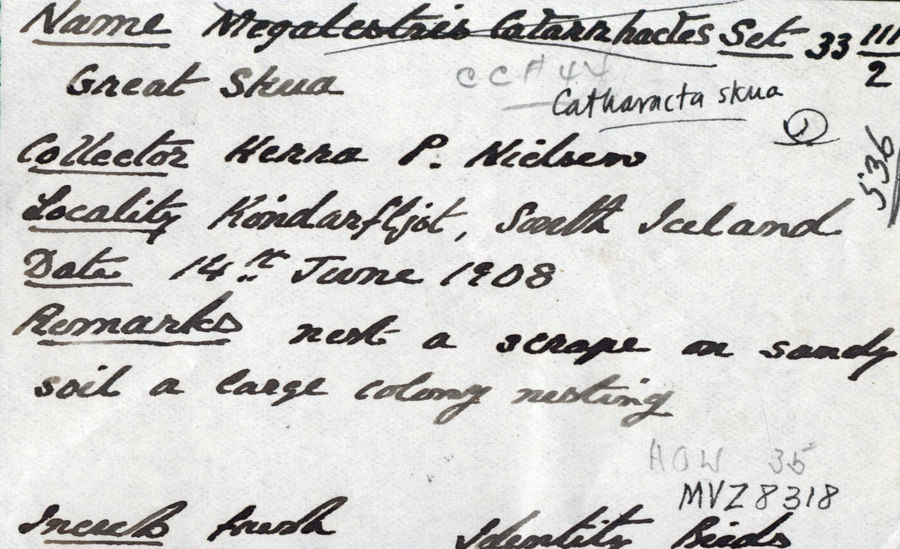 Name Megalestris Catarrhactes Set 33 111/2
Great Skua CCA 44
Catharacta skua
1
536
Collector Herra P. Nielsen
Locality Kindarfljot, South Iceland
Date 14th June 1908
Remarks nest a scrape on sandy
soil a large colony nesting
HOW 35
MVZ 8318
Incub fresh Identity Birds